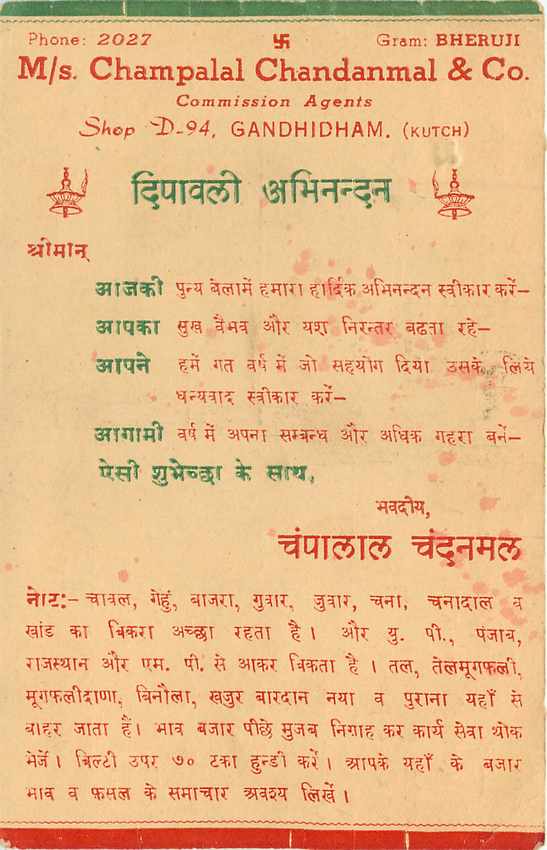 Phone: 2027 卐 Gram: BHERUJI
M/s. Champalal Chandanmal & Co.
Commission Agents
Shop D-94, GANDHIDHAM. (KUTCH)
दिपावली अभिनन्दन
श्रीमान्
आजकी पुन्य बेलामें हमारा हार्दिक अभिनन्दन स्वीकार करें–
आपका सुख वैभव और यश निरन्तर बढता रहे–
आपने हमें गत वर्ष में जो सहयोग दिया उसके लिये
धन्यवाद स्वीकार करें–
आगामी वर्ष में अपना सम्बन्ध और अधिक गहरा बनें–
ऐसी शुभेच्छा के साथ,
भवदीय,
चंपालाल चंदनमल
नोट:– चावल, गेहुं, बाजरा, गुवार, जुवार, चना, चनादाल व
खांड का बिकरा अच्छा रहता है । और यु. पी., पंजाब,
राजस्थान और एम. पी. से आकर बिकता है । तल, तेलमूगफली,
मूगफलीदाणा, बिनौला, खजुर बारदान नया व पुराना यहाँ से
बाहर जाता हैं। भाव बजार पीछे मुजब निगाह कर कार्य सेवा थोक
भेजें । बिल्टी उपर ७० टका हुन्डी करें । आपके यहाँ के बजार
भाव व फसल के समाचार अवश्य लिखें ।